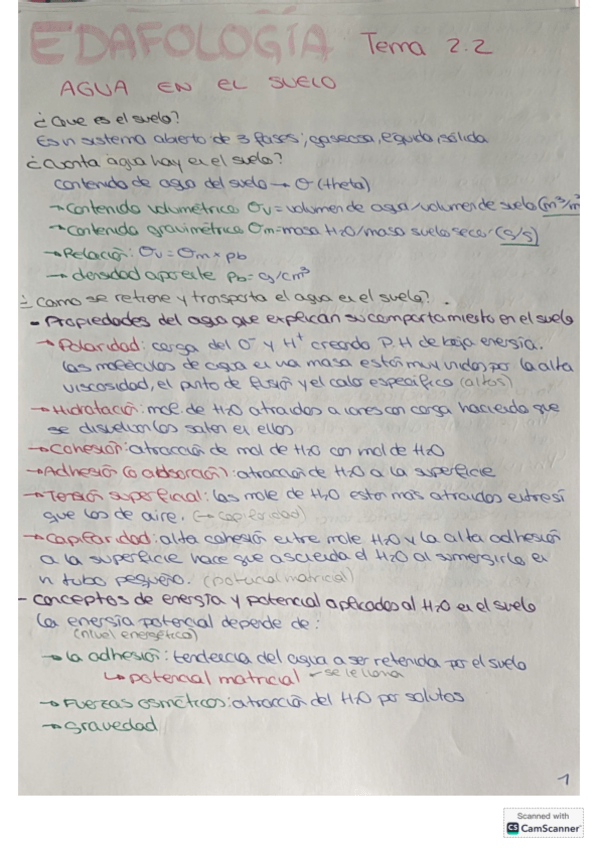 EDAFOLOGÍA Tema 2.2
AGUA EN EL SUELO
¿Que es el suelo?
Es n sistema abierto de 3 fases; gaseosa, líquida, sólida
¿Cuanta agua hay en el suelo?
contenido de agua del suelo → θ (theta)
→ contenido volumétrico θv = volumen de agua/volumen de suelo (m³/m³)
→ contenido gravimétrico θm = masa H2O/masa suelo seco (g/g)
→ Relación: θv = θm × ρb
→ densidad aparente ρb = g/cm³
¿como se retiene y transporta el agua en el suelo?
- Propiedades del agua que explican su comportamiento en el suelo
→ Polaridad: carga del O⁻ y H⁺ creando P.H de baja energía.
Las moléculas de agua en una masa están muy unidas por la alta
viscosidad, el punto de fusión y el calor específico (altos)
→ Hidratación: mol. de H2O atraídas a iones con carga haciendo que
se disuelvan las sales en ellos
→ Cohesión: atracción de mol de H2O con mol de H2O
→ Adhesión (o adsorción): atracción de H2O a la superficie
→ Tensión superficial: las mole de H2O están más atraídas entre sí
que las de aire. (→ capilaridad)
→ Capilaridad: alta cohesión entre mole H2O y la alta adhesión
a la superficie hace que ascienda el H2O al sumergirlo en
n tubo pequeño. (potencial matricial)
- conceptos de energía y potencial aplicados al H2O en el suelo
La energía potencial depende de:
(nivel energético)
→ la adhesión: tendencia del agua a ser retenida por el suelo
↳ potencial matricial - se le llama
→ Fuerzas osmóticas: atracción del H2O por solutos
→ gravedad
1
Scanned with
CS CamScanner